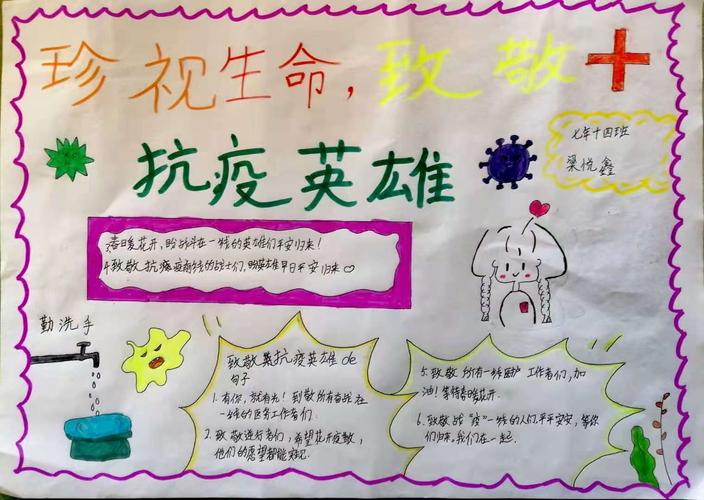 珍视生命，致敬
抗疫英雄
七年十四班
梁悦鑫
春日暖花开，盼战斗在一线的英雄们平安归来！
致敬抗疫前线的战士们，盼英雄早日平安归来
勤洗手
致敬英抗疫英雄de
句子
1. 有你，就有光！到敬所有奋战在
一线的医务工作者们.
2. 致敬逆行者们，希望花开疫散，
他们的愿望都能实现.
5. 致敬所有一线医护工作者们，加
油！等待春暖花开.
6. 致敬战“疫”一线的人们，平平安安，等你
们归来。我们在一起.